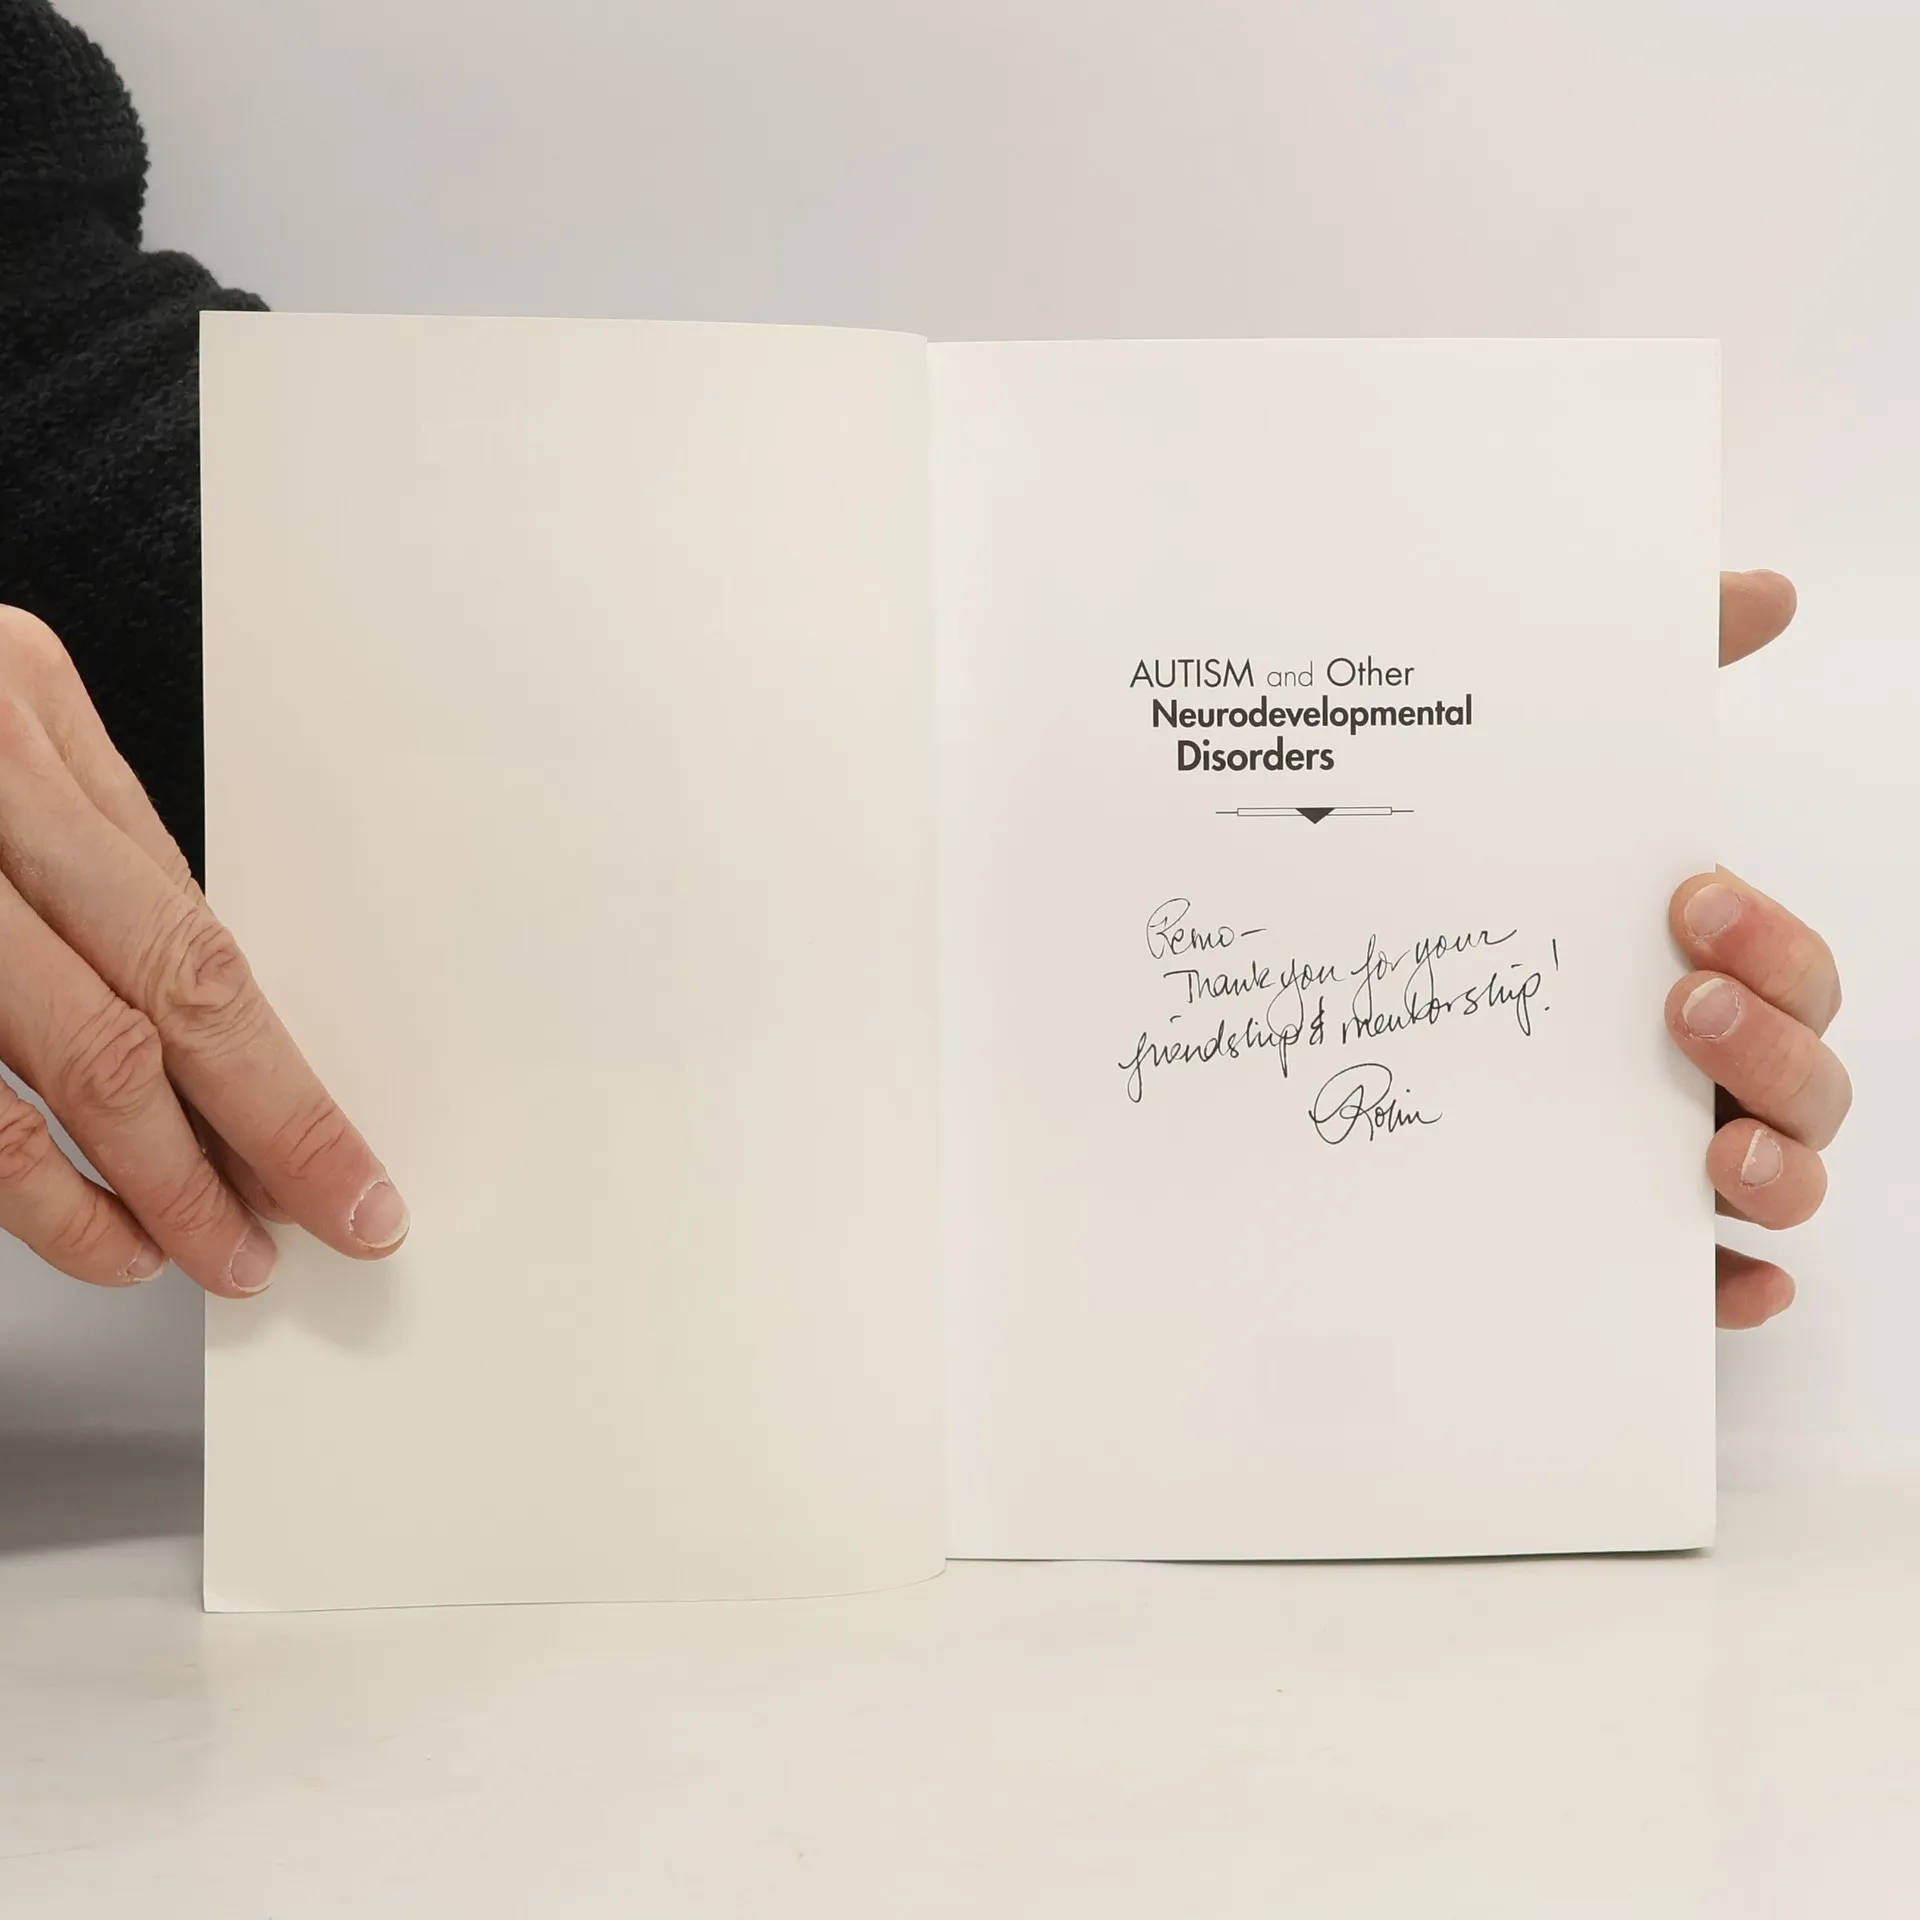 AUTISM and Other
Neurodevelopmental
Disorders
Remo-
Thank you for your
friendship & mentorship!
Robin